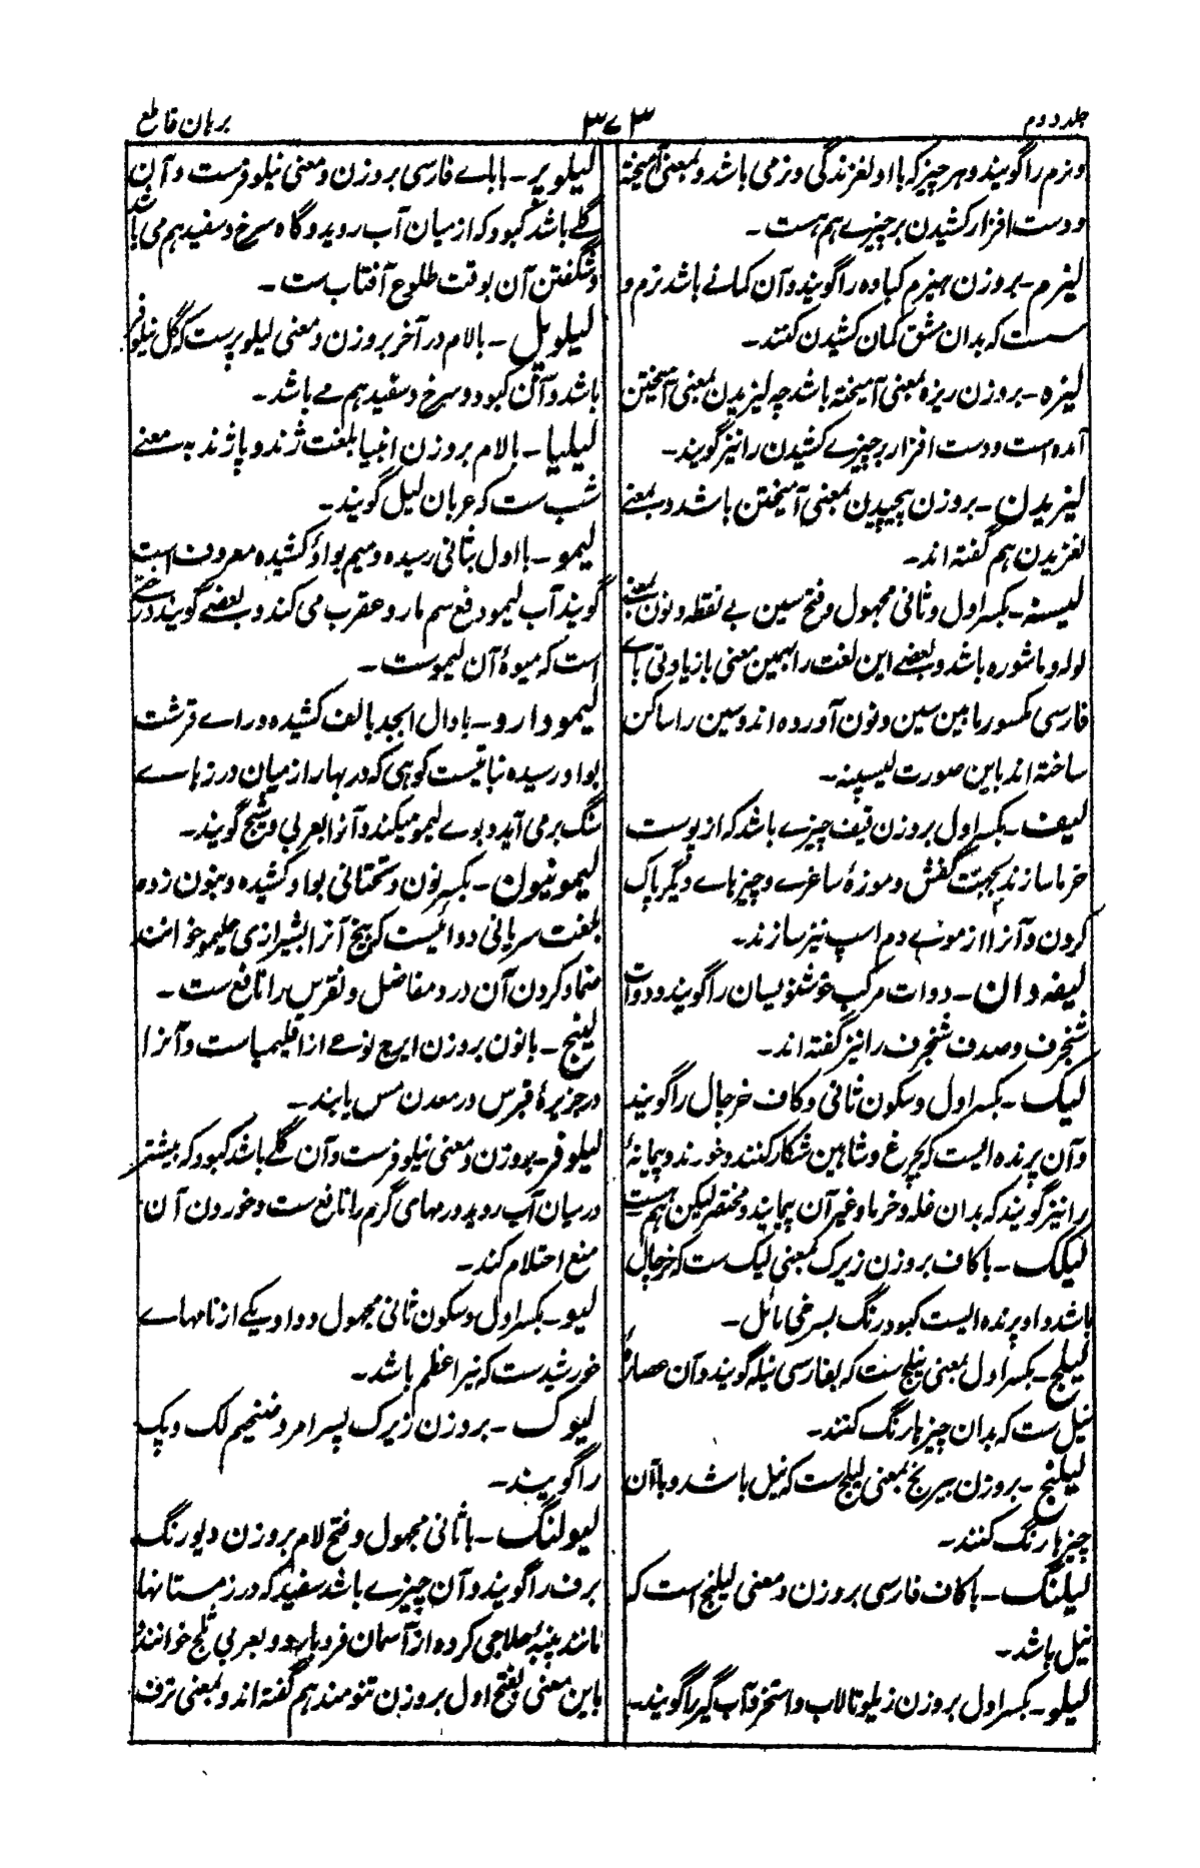 جلد دوم
۳۷۳
برهان قاطع
و نرم را گویند و هر چیز که با او لغزندگی و نرمی باشد و بمعنی آمیخته
و دست افزار کشیدن بر چیزے هم هست۔
لیزم۔ بروزن هیزم کباده را گویند و آن کمانے باشد نرم و
سست که بدان مشق کمان کشیدن کنند۔
لیزه۔ بروزن ریزه بمعنی آمیخته باشد چه لیزیدن بمعنی آمیختن
آمده است و دست افزار بر چیزے کشیدن را نیز گویند۔
لیزیدن۔ بروزن پیچیدن بمعنی آمیختن باشد و بمعنے
لغزیدن هم گفته اند۔
لیسنه۔ بکسر اول و ثانی مجهول و فتح سین بے نقطه و نون بمعنے
لوله و ماشوره باشد و بعضے این لغت را بهمین معنی با زیادتی باے
فارسی مکسور مابین سین و نون آورده اند و سین را ساکن
ساخته اند باین صورت لیسپنه۔
لیف۔ بکسر اول بروزن قیف چیزے باشد که از پوست
خرما سازند بجهت کفش و موزهٔ ساغرے و چیزهاے دیگر پاک
کردن و آنرا از موے دم اسپ نیز سازند۔
لیفه دان۔ دوات مرکب خوشنویسان را گویند و دوات
شنجرف و صدف شنجرف را نیز گفته اند۔
لیک۔ بکسر اول و سکون ثانی و کاف خرچال را گویند
و آن پرنده ایست که بچرغ و شاهین شکار کنند و خورند و پیمانهٔ
را نیز گویند که بدان غله و خرما و غیر آن پیمایند و مختصر لیکن هم هست
لیکک۔ با کاف بروزن زیرک بمعنی لیک ست که خرچال
باشد و او پرنده ایست کبود رنگ بسرخی مائل۔
لیلج۔ بکسر اول بمعنی نیلج ست که بفارسی نیله گویند و آن عصارهٔ
نیل ست که بدان چیزها رنگ کنند۔
لیلنج۔ بروزن بیرنج بمعنی لیلج ست که نیل باشد و با آن
چیزها رنگ کنند۔
لیلنگ۔ با کاف فارسی بروزن و معنی لیلنج است که
نیل باشد۔
لیلو۔ بکسر اول بروزن زیلو تالاب و استخر و آب گیر را گویند۔
لیلوپر۔ با باے فارسی بروزن و معنی نیلوفرست و آن
گلے باشد کبود که از میان آب روید و گاه سرخ و سفید هم می باشد
و شگفتن آن بوقت طلوع آفتاب ست۔
لیلوپل۔ با لام در آخر بروزن و معنی لیلوپرست که گل نیلوفر
باشد و آن کبود و سرخ و سفید هم مے باشد۔
لیلیا۔ با لام بروزن انبیا بلغت ژند و پاژند به معنے
شب ست که عربان لیل گویند۔
لیمو۔ با اول بثانی رسیده و میم بواو کشیده معروف است
گویند آب لیمو دفع سم مار و عقرب می کند و بعضے گویند درختے
است که میوهٔ آن لیموست۔
لیمودارو۔ با دال ابجد بالف کشیده و راے قرشت
بواو رسیده نباتیست کوهی که در بهار از میان درزهاے
سنگ برمی آید و بوے لیمو میکند و آنرا بعربی وشیج گویند۔
لیمونیون۔ بکسر نون و تحتانی بواو کشیده و بنون زده
بلغت سریانی دوائیست که بیخ آنرا بشیرازی ملیمو خوانند
ضماد کردن آن درد مفاصل و نقرس را نافع ست۔
لینج۔ با نون بروزن ایرج نوعے از اقلیمیاست و آنرا
در جزیرهٔ قبرس در معدن مس یابند۔
لیلوفر۔ بروزن و معنی نیلوفرست و آن گلے باشد کبود که بیشتر
در میان آب روید ورمهای گرم را نافع ست و خوردن آن
منع احتلام کند۔
لیو۔ بکسر اول و سکون ثانی مجهول و واو یکے از نامهاے
خورشید ست که نیر اعظم باشد۔
لیوک۔ بروزن زیرک پسر امرد ضخیم لک و پک
را گویند۔
لیولنگ۔ با ثانی مجهول و فتح لام بروزن دیورنگ
برف را گویند و آن چیزے باشد سفید که در زمستانها
مانند پنبهٔ حلاجی کرده از آسمان فرو بارد و بعربی ثلج خوانند و
باین معنی بفتح اول بروزن تنومند هم گفته اند و بمعنی ترف